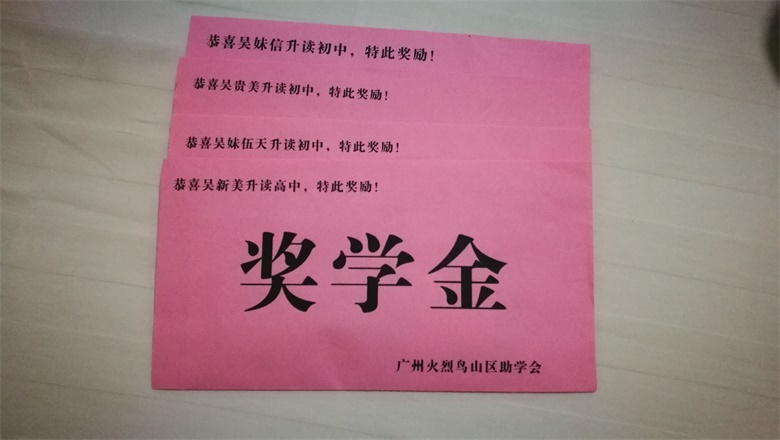 恭喜吴妹信升读初中，特此奖励！
恭喜吴贵美升读初中，特此奖励！
恭喜吴妹伍天升读初中，特此奖励！
恭喜吴新美升读高中，特此奖励！
奖学金
广州火烈鸟山区助学会